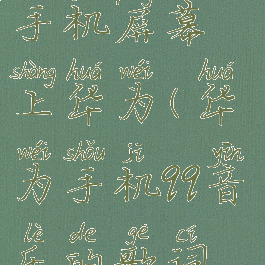 手机屏幕
shàng huá wéi huá
上华为（华
wéi shǒu jī yīn
为手机99音
lè de gē cí
乐的歌词